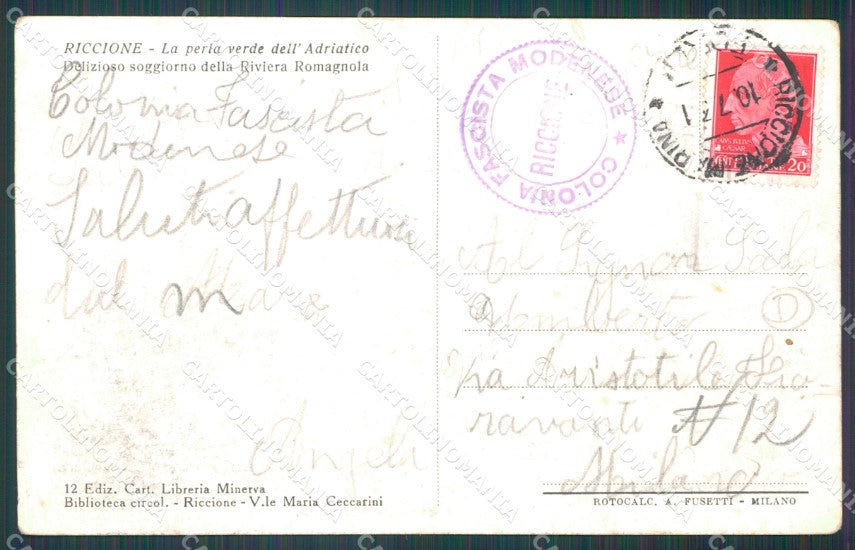 RICCIONE - La perla verde dell'Adriatico
Delizioso soggiorno della Riviera Romagnola
Colonia Fascista
Modenese
Saluti affettuosi
dal Mare
Angela
12 Ediz. Cart. Libreria Minerva
Biblioteca circol. - Riccione - V.le Maria Ceccarini
COLONIA FASCISTA MODENESE ★
RICCIONE
RICCIONE
10.7
CAESAR
20
Al Signor Sala
Umilberto D
via Aristotile Fio-
ravanti N 12
Milano
ROTOCALC. A. FUSETTI - MILANO
CARTOLINOMANIA